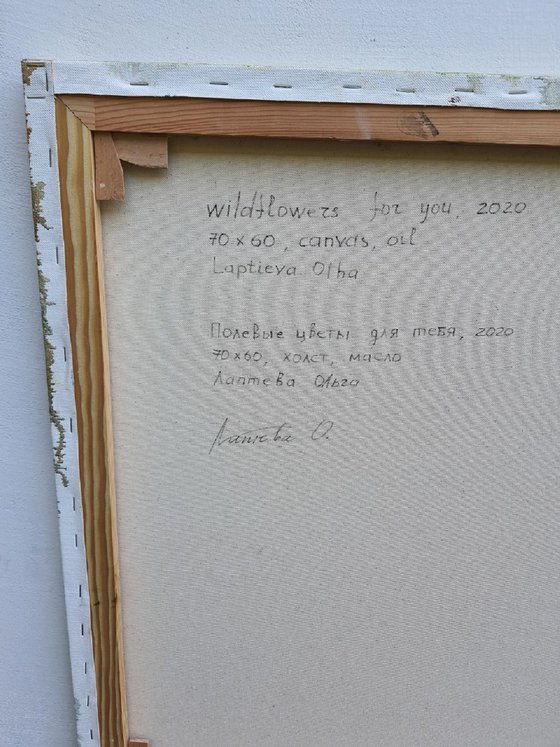 wildflowers for you, 2020
70 x 60, canvas, oil
Laptieva Olha
Полевые цветы для тебя, 2020
70x60, холст, масло
Лаптева Ольга
Лаптева О.